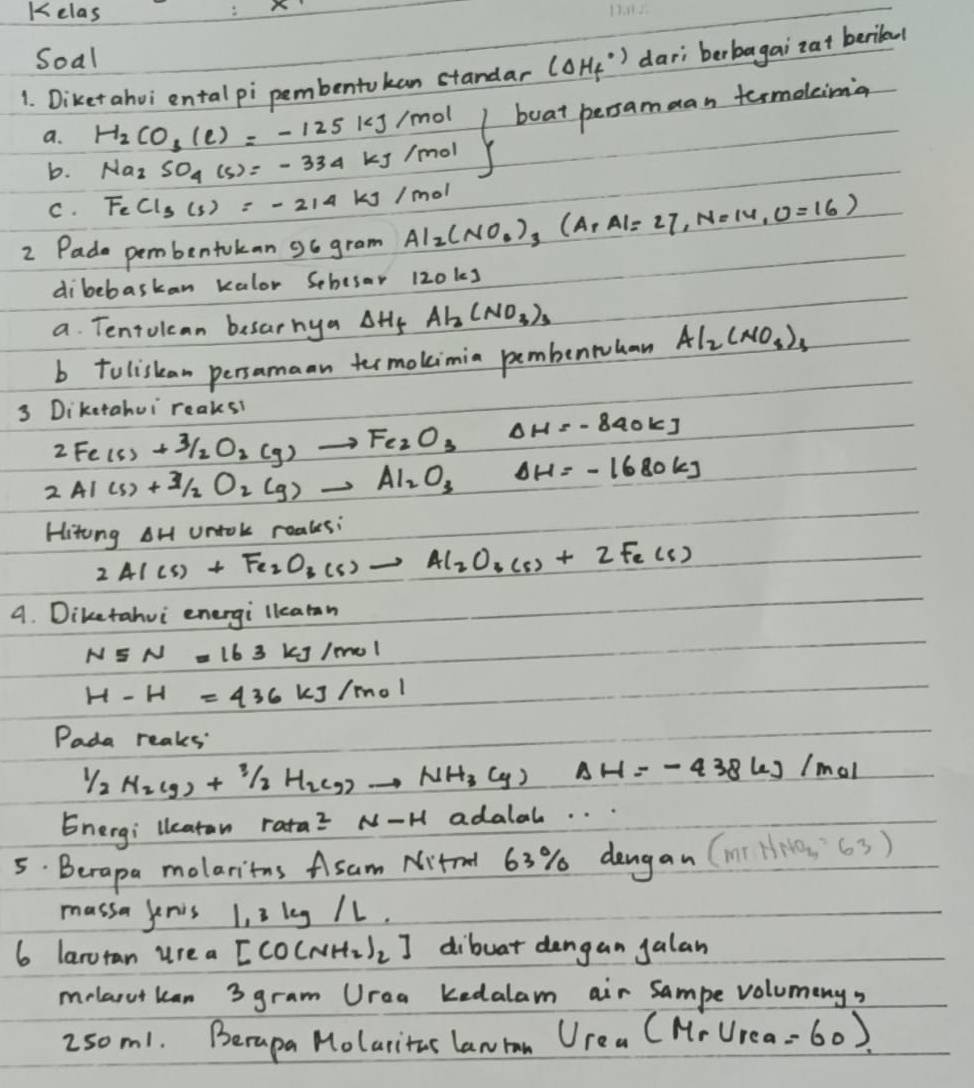 Kelas : X
Soal
1. Diketahui entalpi pembentukan standar (ΔHf°) dari berbagai zat berikut
a. H₂CO₃ (l) = -125 kJ/mol } buat persamaan termokimia
b. Na₂SO₄ (s) = -334 kJ/mol
c. FeCl₃ (s) = -214 kJ/mol
2 Pada pembentukan 96 gram Al₂(NO₃)₃ (Ar Al = 27, N = 14, O = 16)
dibebaskan kalor sebesar 120 kJ
a. Tentukan besarnya ΔHf Al₂(NO₃)₃
b Tuliskan persamaan termokimia pembentukan Al₂(NO₃)₃
3 Diketahui reaksi
2 Fe (s) + 3/2 O₂ (g) → Fe₂O₃ ΔH = -840 kJ
2 Al (s) + 3/2 O₂ (g) → Al₂O₃ ΔH = -1680 kJ
Hitung ΔH untuk reaksi
2 Al (s) + Fe₂O₃ (s) → Al₂O₃ (s) + 2 Fe (s)
4. Diketahui energi ikatan
N≡N = 163 kJ/mol
H-H = 436 kJ/mol
Pada reaksi
1/2 N₂ (g) + 3/2 H₂ (g) → NH₃ (g) ΔH = -438 kJ/mol
Energi ikatan rata² N-H adalah ...
5. Berapa molaritas Asam Nitrat 63% dengan (mr HNO₃ = 63)
massa jenis 1,3 kg/L.
6 larutan urea [CO(NH₂)₂] dibuat dengan jalan
melarutkan 3 gram Urea kedalam air sampe volumenya
250 ml. Berapa Molaritas larutan Urea (Mr Urea = 60).